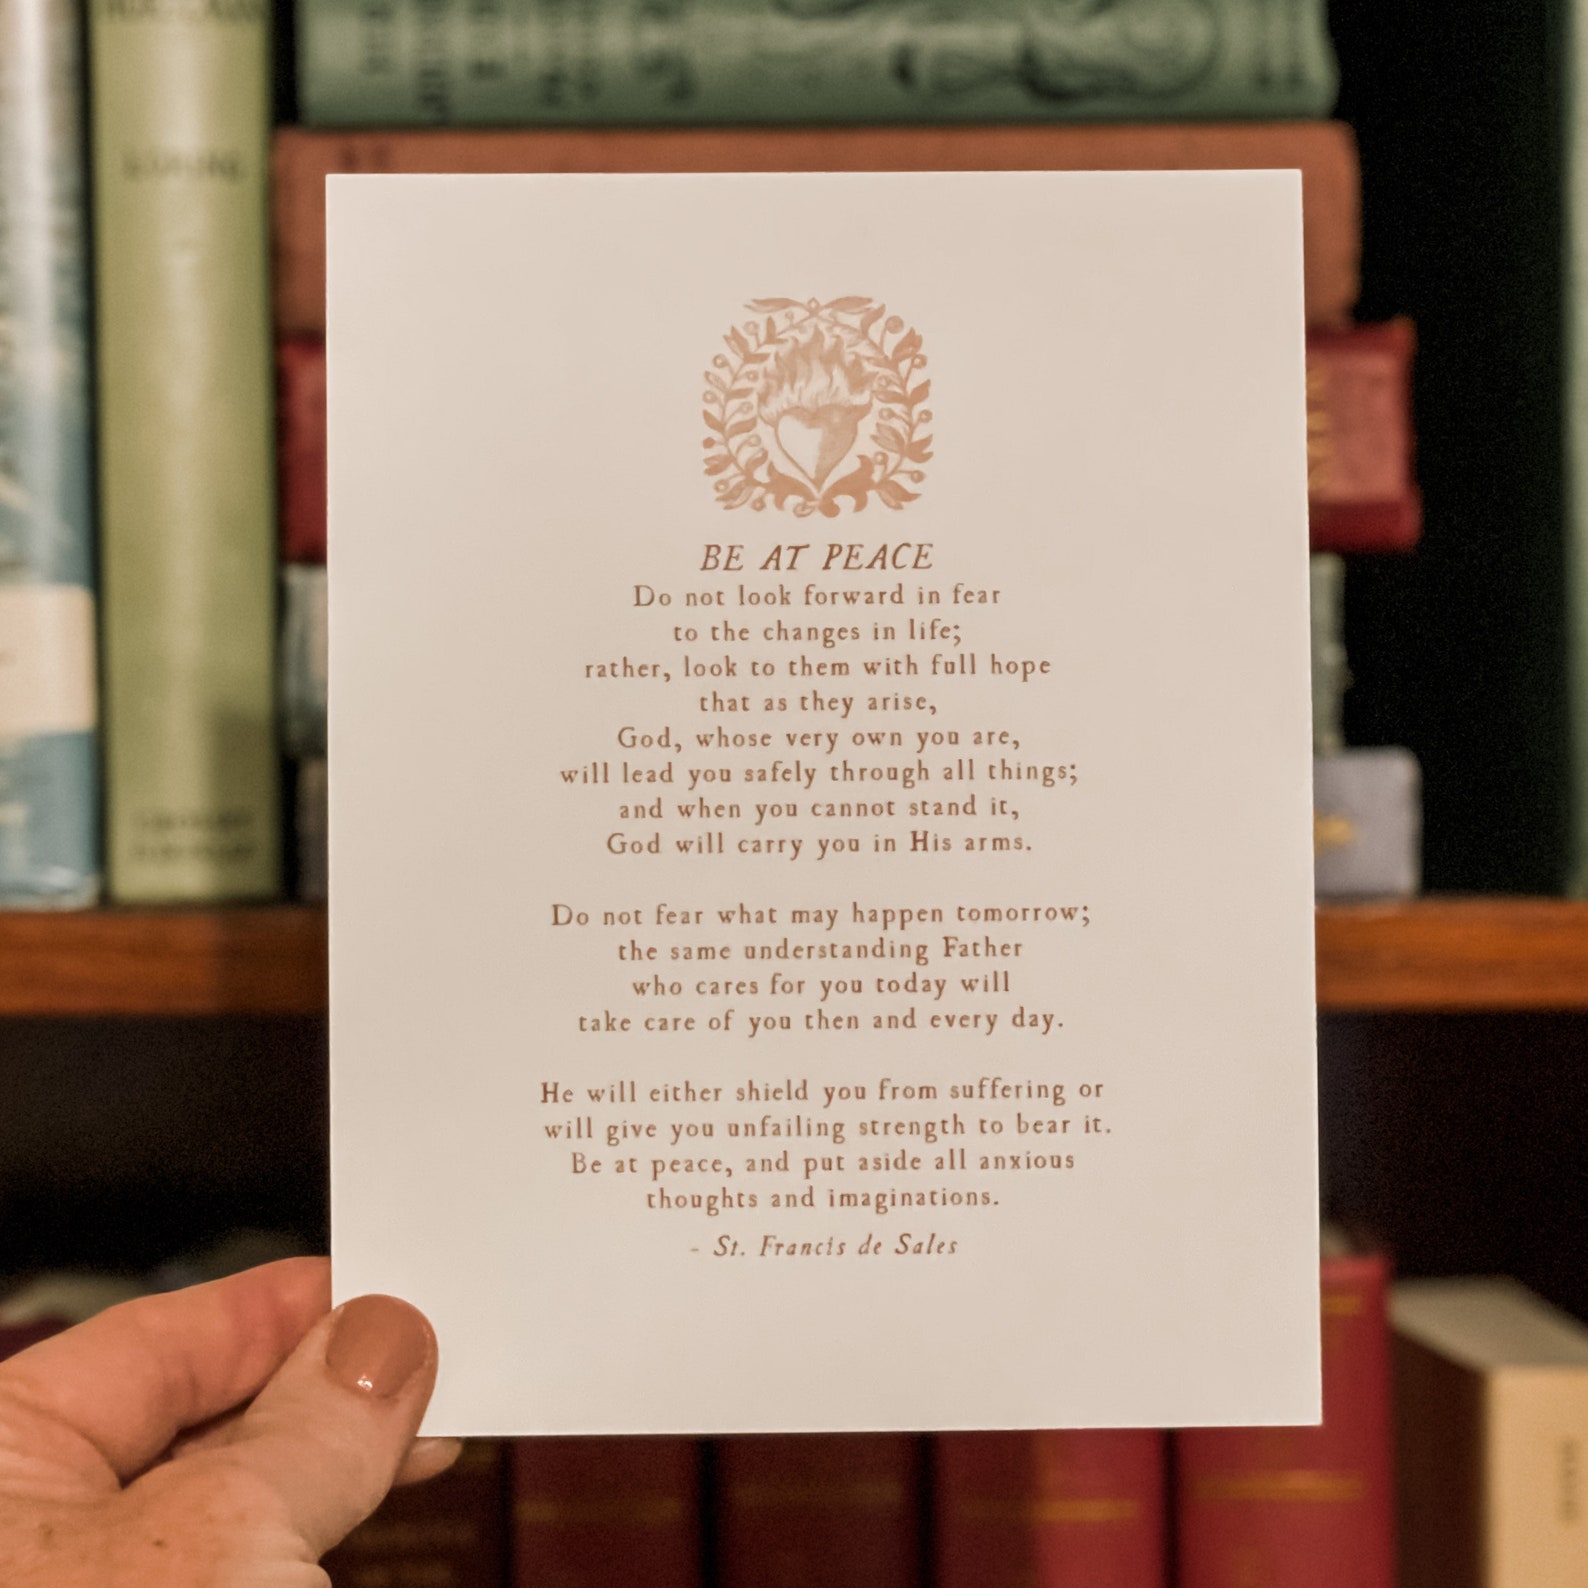 BE AT PEACE
Do not look forward in fear
to the changes in life;
rather, look to them with full hope
that as they arise,
God, whose very own you are,
will lead you safely through all things;
and when you cannot stand it,
God will carry you in His arms.
Do not fear what may happen tomorrow;
the same understanding Father
who cares for you today will
take care of you then and every day.
He will either shield you from suffering or
will give you unfailing strength to bear it.
Be at peace, and put aside all anxious
thoughts and imaginations.
- St. Francis de Sales